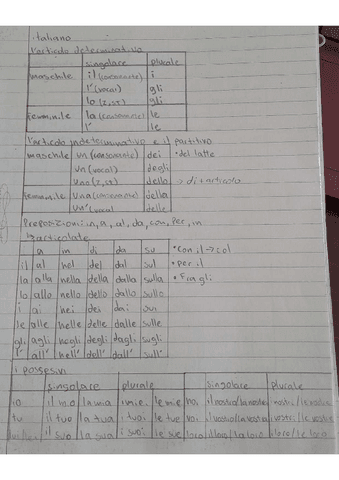 italiano
l'articolo determinativo
singolare plurale
maschile il (consonante) i
l' (vocal) gli
lo (z, st) gli
femminile la (consonante) le
l' le
l'articolo indeterminativo e il partitivo
maschile un (consonante) dei • del latte
un (vocal) degli
uno (z, st) dello → di + articolo
femminile una (consonante) della
un' (vocal) delle
Preposizioni: in, a, al, da, con, per, in
articolate
a in di da su • con il → col
il al nel del dal sul • per il
la alla nella della dalla sulla • fra gli
lo allo nello dello dallo sullo
i ai nei dei dai sui
le alle nelle delle dalle sulle
gli agli negli degli dagli sugli
l' all' nell' dell' dall' sull'
i possesivi
singolare plurale singolare plurale
io il mio la mia i miei le mie noi il nostro/la nostra i nostri/le nostre
tu il tuo la tua i tuoi le tue voi il vostro/la vostra i vostri/le vostre
il suo la sua i suoi le sue il loro/la loro i loro/le loro